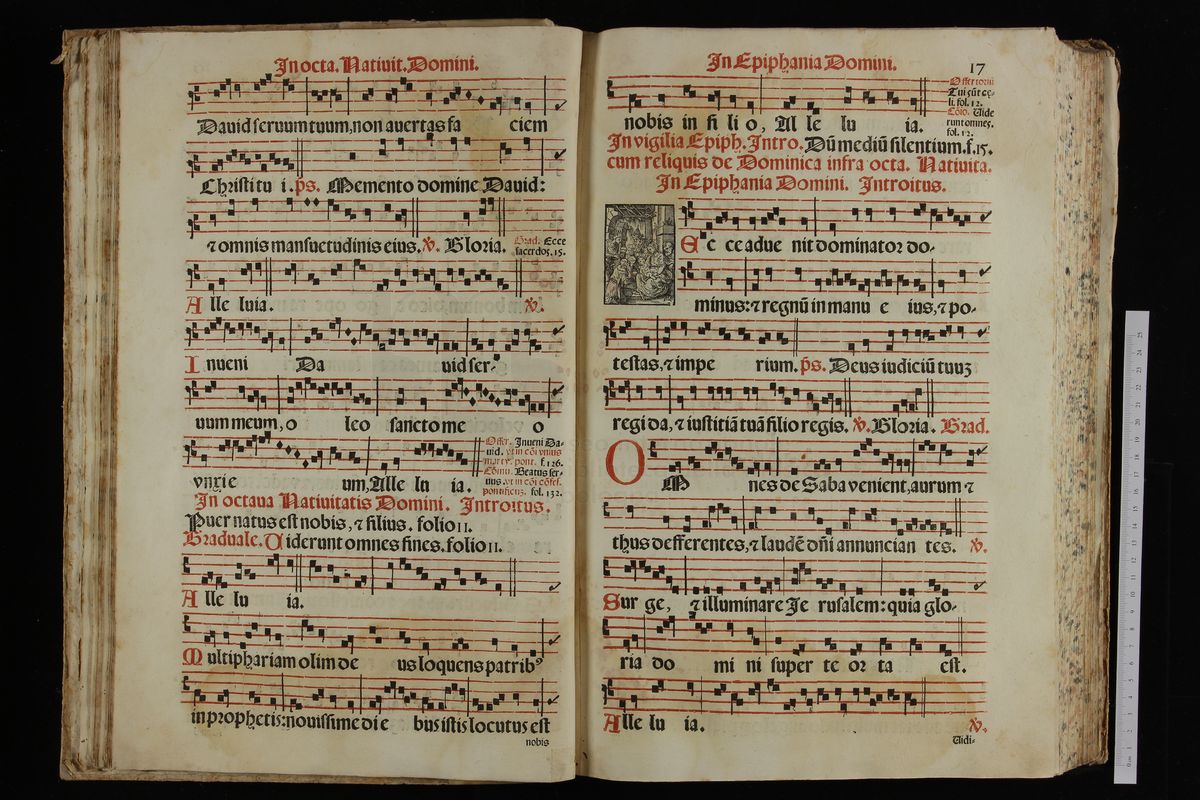 In octa. Natiuit. Domini.
Dauid seruum tuum, non auertas fa ciem
Christi tu i. ps. Memento domine Dauid:
⁊ omnis mansuetudinis eius. ℣. Gloria.
Grad. Ecce
sacerdos, 15.
A lle luia. ℣.
I nueni Da uid ser-
uum meum, o leo sancto me o
vnxie um, Alle lu ia.
Offer. Inueni Da-
uid. vt in cōi vnius
mart yr. pont. f. 126.
Cōmu. Beatus ser-
uus. vt in cōi cōfes.
pontificuʒ. fol. 132.
In octaua Natiuitatis Domini. Introitus.
Puer natus est nobis, ⁊ filius. folio 11.
Graduale. Uiderunt omnes fines. folio 11.
A lle lu ia.
M ultiphariam olim de us loquens patribꝰ
in prophetis: nouissime di e bus istis locutus est
nobis
In Epiphania Domini. 17
nobis in fi li o, Al le lu ia.
Offertoriū
Tui sūt cę-
li. fol. 12.
Cōio. Uide
runt omnes.
fol. 12.
In vigilia Epiph. Intro. Dū mediū silentium. f. 15.
cum reliquis de Dominica infra octa. Natiuita.
In Epiphania Domini. Introitus.
E c ce adue nit dominator do-
minus: ⁊ regnū in manu e ius, ⁊ po-
testas, ⁊ impe rium. ps. Deus iudiciū tuuʒ
regi da, ⁊ iustitiā tuā filio regis. ℣. Gloria. Grad.
O M nes de Saba venient, aurum ⁊
thus defferentes, ⁊ laudē dñi annuncian tes. ℣.
Sur ge, ⁊ illuminare Je rusalem: quia glo-
ria do mi ni super te or ta est.
Alle lu ia. ℣.
Uidi-